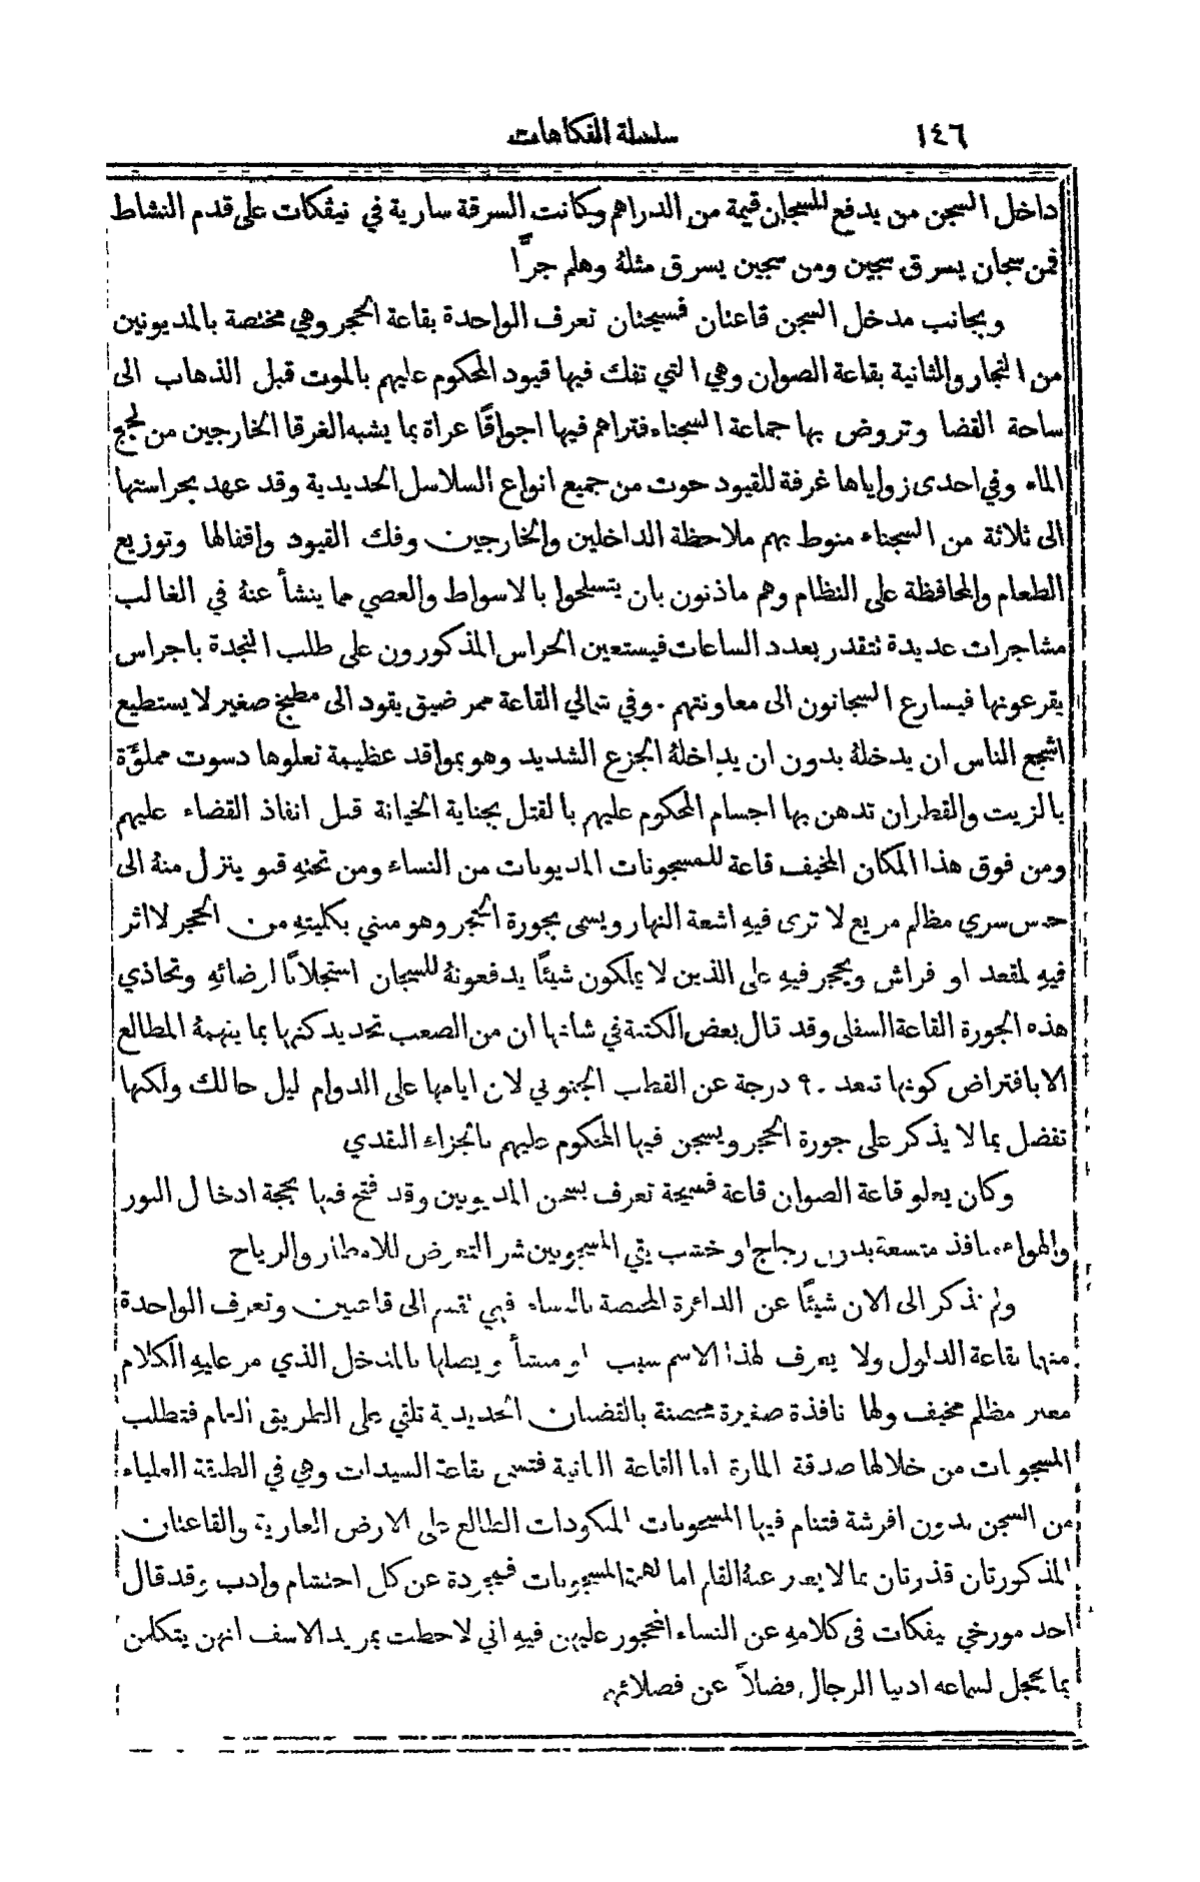 ١٤٦ سلسلة الفكاهات
داخل السجن من يدفع للسجان قيمة من الدراهم وكانت السرقة سارية في نيڤكات على قدم النشاط
فمن سجان يسرق سجين ومن سجين يسرق مثلهُ وهلم جرًّا
وبجانب مدخل السجن قاعتان فسيحتان تعرف الواحدة بقاعة الحجر وهي مختصة بالمديونين
من التجار والثانية بقاعة الصوان وهي التي تفك فيها قيود المحكوم عليهم بالموت قبل الذهاب الى
ساحة القضا وتروض بها جماعة السجناء فتراهم فيها اجواقًا عراة بما يشبه الغرقا الخارجين من لجج
الماء وفي احدى زواياها غرفة للقيود حوت من جميع انواع السلاسل الحديدية وقد عهد بحراستها
الى ثلاثة من السجناء منوط بهم ملاحظة الداخلين والخارجين وفك القيود واقفالها وتوزيع
الطعام والمحافظة على النظام وهم ماذنون بان يتسلحوا بالاسواط والعصي مما ينشأ عنهُ في الغالب
مشاجرات عديدة تتقدر بعدد الساعات فيستعين الحراس المذكورون على طلب النجدة باجراس
يقرعونها فيسارع السجانون الى معاونتهم . وفي شمالي القاعة ممر ضيق يقود الى مطبخ صغير لا يستطيع
اشجع الناس ان يدخلهُ بدون ان يداخلهُ الجزع الشديد وهو بمواقد عظيمة تعلوها دسوت مملوَّة
بالزيت والقطران تدهن بها اجسام المحكوم عليهم بالقتل بجناية الخيانة قبل انفاذ القضاء عليهم
ومن فوق هذا المكان المخيف قاعة للمسجونات المديونات من النساء ومن تحتهِ قبو ينزل منهُ الى
حبس سري مظلم مريع لا ترى فيهِ اشعة النهار ويسمى بجورة الحجر وهو مبني بكليتهِ من الحجر لا اثر
فيهِ لمقعد او فراش ويحجر فيهِ على الذين لا يملكون شيئًا يدفعونهُ للسجان استجلابًا لرضائهِ وتحاذي
هذه الجورة القاعة السفلى وقد قال بعض الكتبة في شانها ان من الصعب تحديد كنهها بما ينهمهُ المطالع
الا بافتراض كونها تبعد ٩٠ درجة عن القطب الجنوبي لان ايامها على الدوام ليل حالك ولكنها
تفضل بما لا يذكر على جورة الحجر ويسجن فيها المحكوم عليهم بالجزاء النقدي
وكان يعلو قاعة الصوان قاعة فسيحة تعرف بسجن المديونين وقد فتح فيها بحجة ادخال النور
والهواء منافذ متسعة بدون زجاج او خشب يقي المسجونين شر التعرض للامطار والرياح
ولم نذكر الى الان شيئًا عن الدائرة المختصة بالنساء فهي تقسم الى قاعتين وتعرف الواحدة
منها بقاعة الدلول ولا يعرف لهذا الاسم سبب او منشأ ويصلها بالمدخل الذي مر عليهِ الكلام
معبر مظلم مخيف ولها نافذة صغيرة محصنة بالقضبان الحديدية تلقي على الطريق العام فتطلب
المسجونات من خلالها صدقة المارة اما القاعة الثانية فتسمى بقاعة السيدات وهي في الطبقة العلياء
من السجن بدون افرشة فتنام فيها المسجونات المنكودات الطالع على الارض العارية والقاعتان
المذكورتان قذرتان بما لا يعبر عنهُ القلم اما لهجة المسجونات فمجردة عن كل احتشام وادب وقد قال
احد مورخي نيڤكات في كلامهِ عن النساء المحجور عليهن فيهِ اني لاحظت بمزيد الاسف انهن يتكلمن
بما يخجل لسماعه ادنيا الرجال فضلاً عن فضلائهم